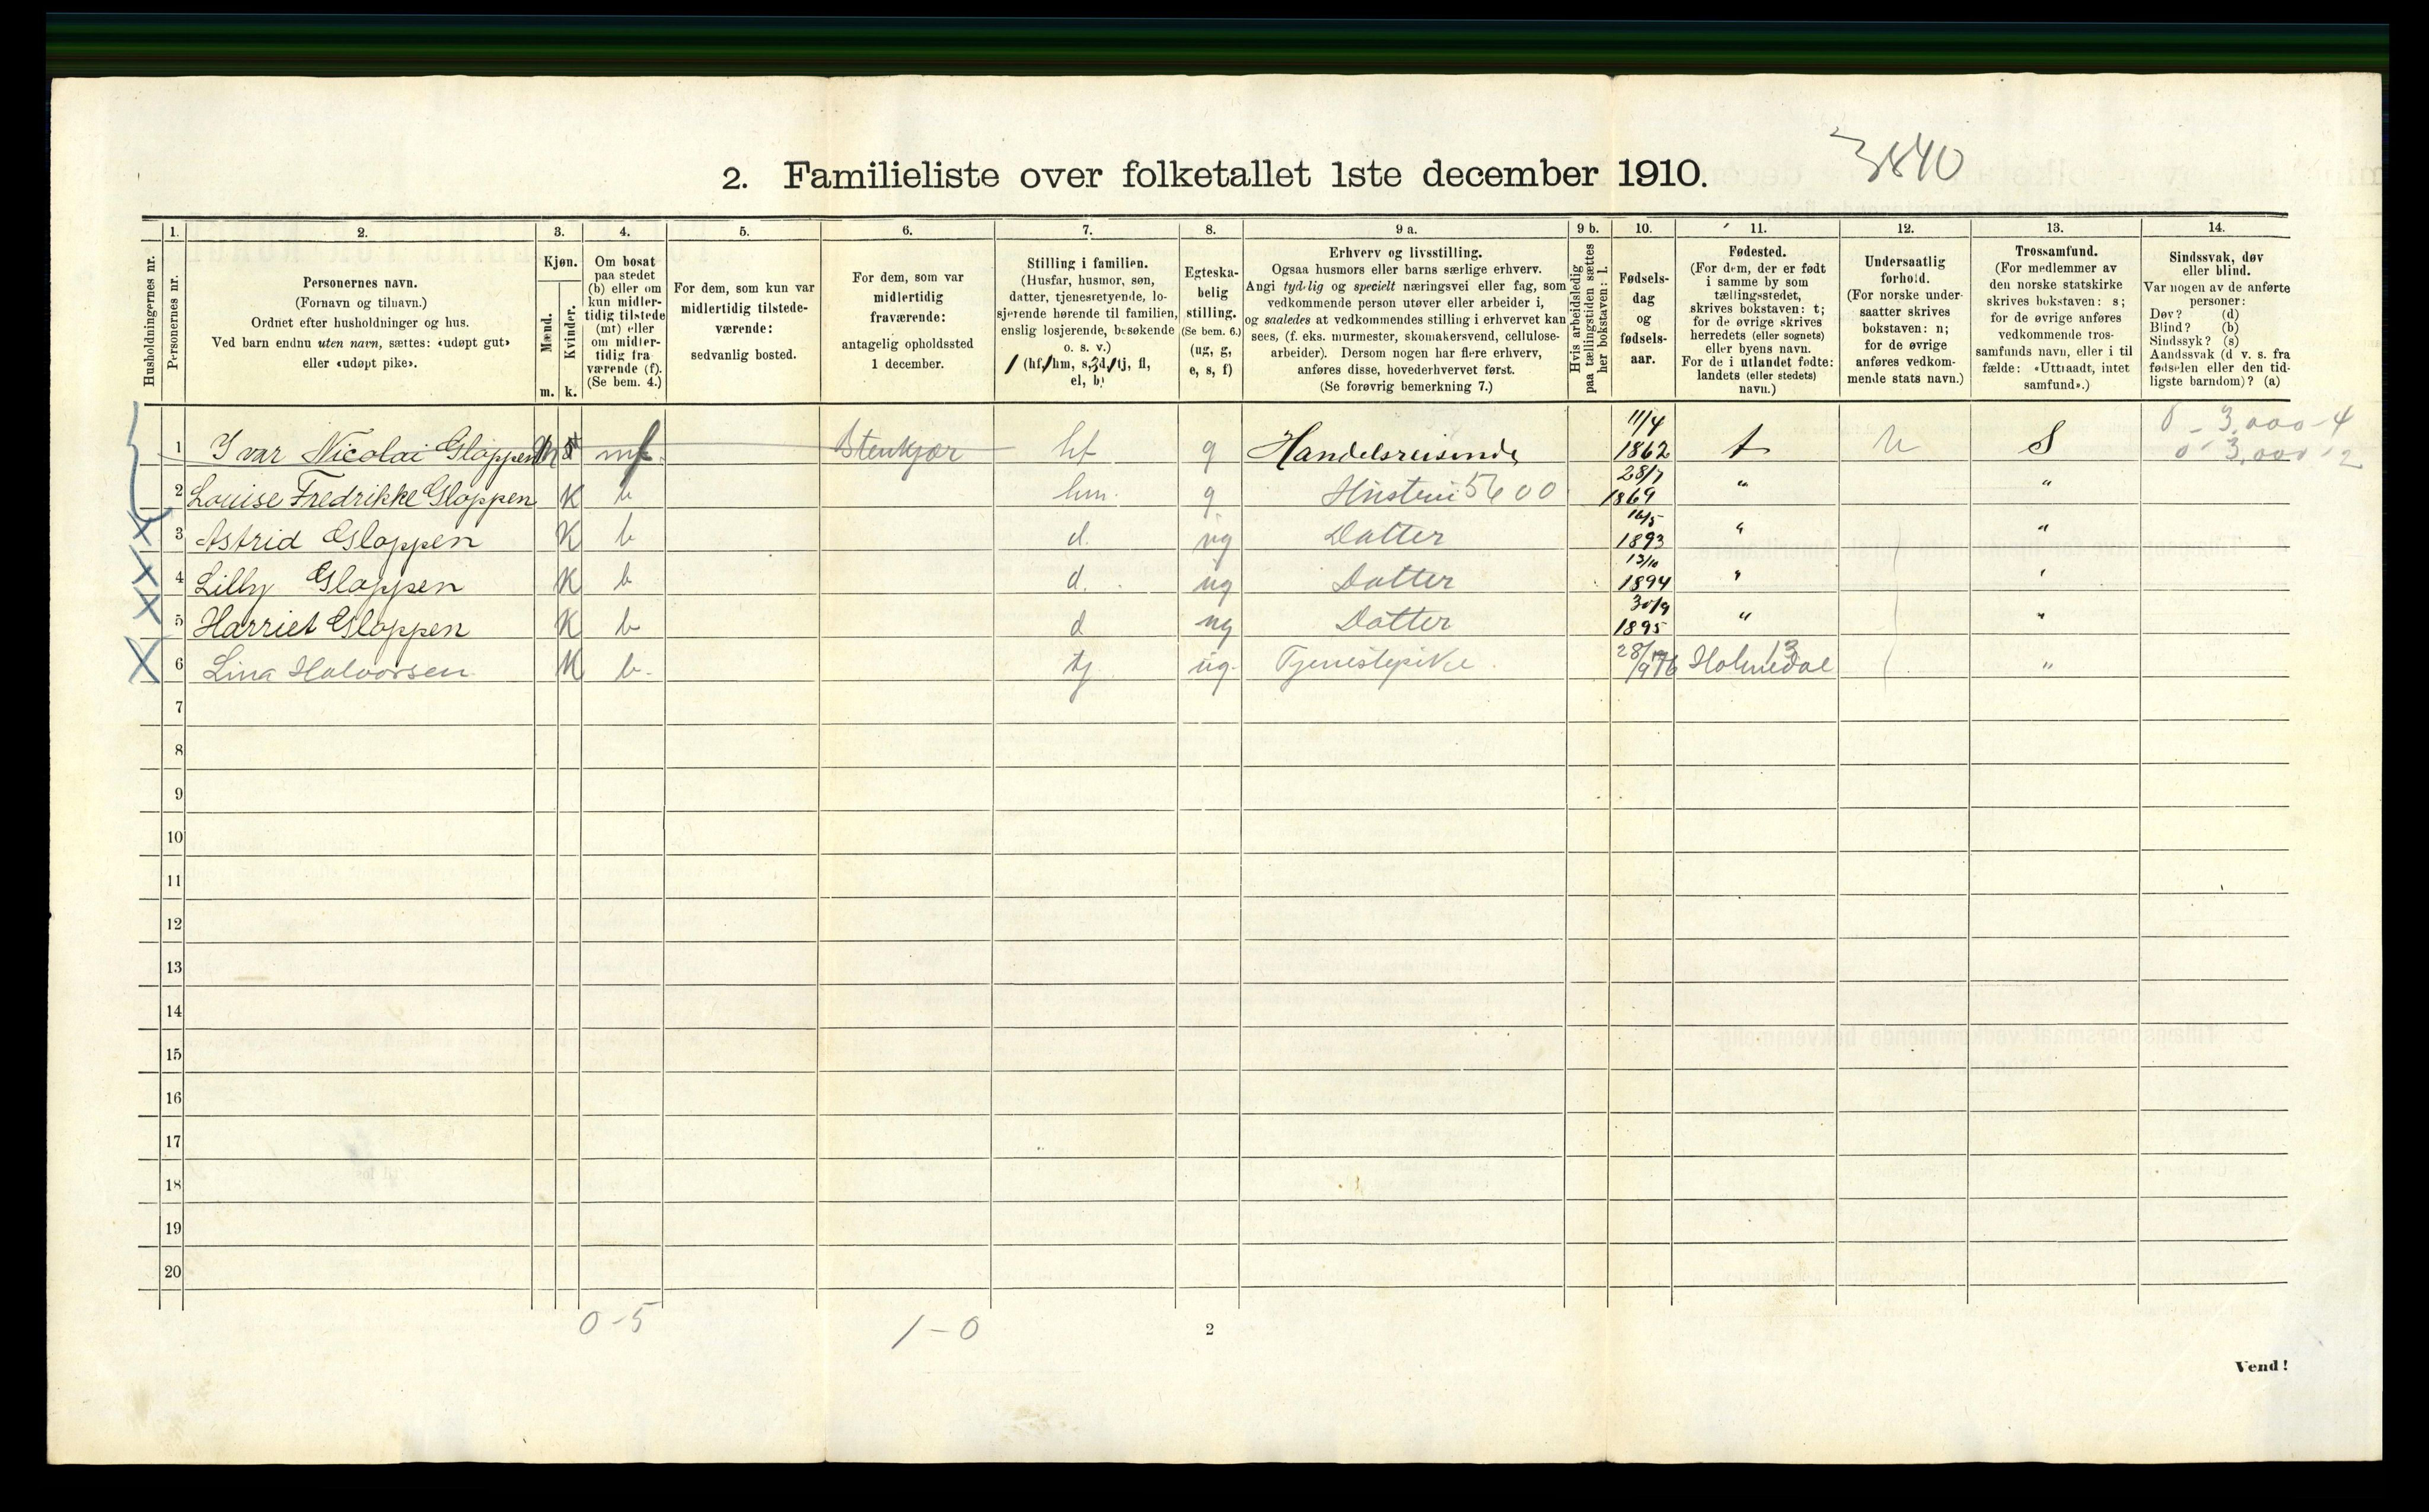 3840
2. Familieliste over folketallet 1ste december 1910.
Husholdningernes nr.
1. Personernes nr.
2. Personernes navn.
(Fornavn og tilnavn.)
Ordnet efter husholdninger og hus.
Ved barn endnu uten navn, sættes: «udøpt gut»
eller «udøpt pike».
3. Kjøn.
Mænd. m.
Kvinder. k.
4. Om bosat
paa stedet
(b) eller om
kun midler-
tidig tilstede
(mt) eller
om midler-
tidig fra-
værende (f).
(Se bem. 4.)
5. For dem, som kun var
midlertidig tilstede-
værende:
sedvanlig bosted.
6. For dem, som var
midlertidig
fraværende:
antagelig opholdssted
1 december.
7. Stilling i familien.
(Husfar, husmor, søn,
datter, tjenestetyende, lo-
sjerende hørende til familien,
enslig losjerende, besøkende
o. s. v.)
(hf, hm, s, d, tj, fl,
el, b)
8. Egteska-
belig
stilling.
(Se bem. 6.)
(ug, g,
e, s, f)
9 a. Erhverv og livsstilling.
Ogsaa husmors eller barns særlige erhverv.
Angi tydelig og specielt næringsvei eller fag, som
vedkommende person utøver eller arbeider i,
og saaledes at vedkommendes stilling i erhvervet kan
sees, (f. eks. murmester, skomakersvend, cellulose-
arbeider). Dersom nogen har flere erhverv,
anføres disse, hovederhvervet først.
(Se forøvrig bemerkning 7.)
9 b. Hvis arbeidsledig
paa tællingstiden sættes
her bokstaven: l.
10. Fødsels-
dag
og
fødsels-
aar.
11. Fødested.
(For dem, der er født
i samme by som
tællingsstedet,
skrives bokstaven: t;
for de øvrige skrives
herredets (eller sognets)
eller byens navn.
For de i utlandet fødte:
landets (eller stedets)
navn.)
12. Undersaatlig
forhold.
(For norske under-
saatter skrives
bokstaven: n;
for de øvrige
anføres vedkom-
mende stats navn.)
13. Trossamfund.
(For medlemmer av
den norske statskirke
skrives bokstaven: s;
for de øvrige anføres
vedkommende tros-
samfunds navn, eller i til-
fælde: «Uttraadt, intet
samfund».)
14. Sindssvak, døv
eller blind.
Var nogen av de anførte
personer:
Døv? (d)
Blind? (b)
Sindssyk? (s)
Aandssvak (d. v. s. fra
fødselen eller den tid-
ligste barndom)? (a)
1 Ivar Nicolai Gloppen m f Stenkjær hf g Handelsreisende 11/4 1862 t n S 0 - 3.000 - 4
0 - 3.000 - 2
2 Louise Fredrikke Gloppen K b hm. g Hustru 5600 28/7 1869 " "
3 Astrid Gloppen K b d. ug Datter 16/5 1893 " "
4 Lilly Gloppen K b d. ug Datter 13/10 1894 " "
5 Harriet Gloppen K b d ug Datter 30/9 1895 " "
6 Lina Halvorsen K b. tj ug. Tjenestepike. Holmedal 13 "
7
8
9
10
11
12
13
14
15
16
17
18
19
20
0-5
1-0
2
Vend!